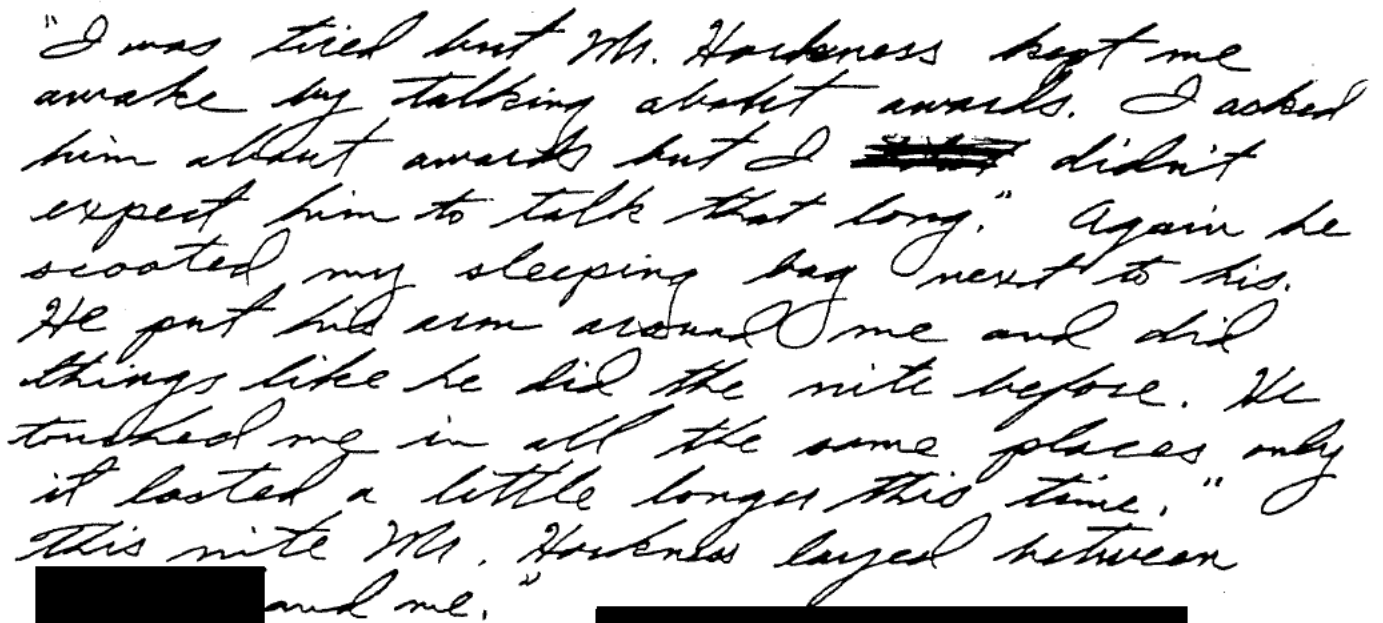 "I was tired but Mr. Harkness kept me
awake by talking about awards. I asked
him about awards but I didn't
expect him to talk that long." Again he
scooted my sleeping bag next to his.
He put his arm around me and did
things like he did the nite before. He
touched me in all the same places only
it lasted a little longer this time."
This nite Mr. Harkness layed between
and me."